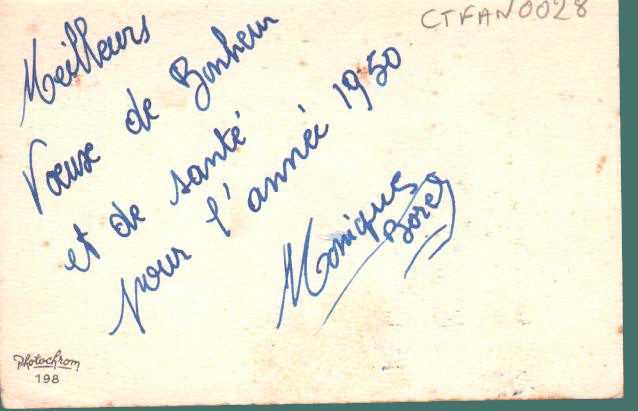 CTFAN0028
Meilleurs
Vœux de Bonheur
et de santé
pour l'année 1950
Monique
Borel
Photochrom
198